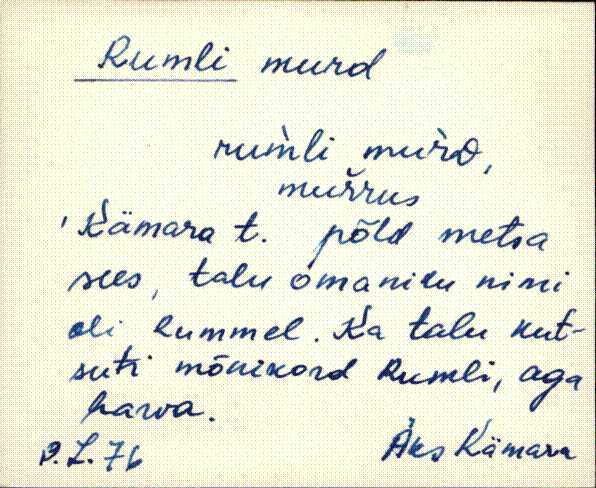 Rumli murd
rum̀li mur̀D,
mur̆rus
'Kämara t. põld metsa
sees, talu omaniku nimi
oli Rummel. Ka talu kut-
suti mõnikord Rumli, aga
harva.
P.L. 76 Äks Kämara